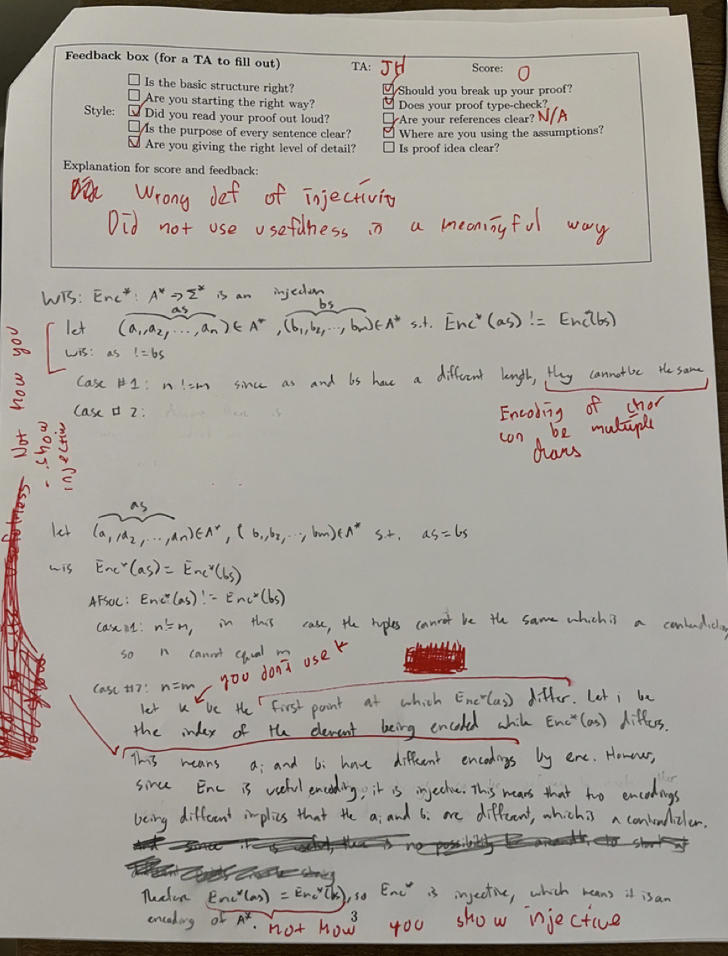 Feedback box (for a TA to fill out) TA: JH Score: 0
☐ Is the basic structure right?
☐ Are you starting the right way?
Style: ☑ Did you read your proof out loud?
☐ Is the purpose of every sentence clear?
☑ Are you giving the right level of detail?
☑ Should you break up your proof?
☑ Does your proof type-check?
☐ Are your references clear? N/A
☑ Where are you using the assumptions?
☐ Is proof idea clear?
Explanation for score and feedback:
Wrong def of injectivity
Did not use usefulness in a meaningful way
WTS: Enc*: A* → Σ* is an injection
as bs
let (a₁,a₂,...,an) ∈ A*, (b₁,b₂,...,bm) ∈ A* s.t. Enc*(as) != Enc*(bs)
WTS: as != bs
Case #1: n != m since as and bs have a different length, they cannot be the same
Case # 2:
Encoding of char
can be multiple
chars
Not how you
show
injective
as
let (a₁,a₂,...,an) ∈ A*, (b₁,b₂,...,bm) ∈ A* s.t. as = bs
wts Enc*(as) = Enc*(bs)
AFSOC: Enc*(as) != Enc*(bs)
case #1: n != m, in this case, the tuples cannot be the same which is a contradiction
so n cannot equal m
you don't use k
case #2: n=m
let k be the first point at which Enc*(as) differ. Let i be
the index of the element being encoded while Enc*(as) differs.
This means ai and bi have different encodings by enc. However,
since Enc is useful encoding, it is injective. This means that two encodings
being different implies that the ai and bi are different, which is a contradiction.
Therefore Enc*(as) = Enc*(bs), so Enc* is injective, which means it is an
encoding of A*.
3
not how you show injective